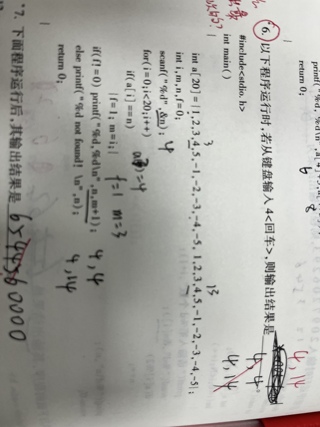 return 0;
*6. 以下程序运行时,若从键盘输入 4<回车>,则输出结果是
4,14
4,4
4,14
#include<stdio.h>
int main()
{
int a[20]={1,2,3,4,5,-1,-2,-3,-4,-5,1,2,3,4,5,-1,-2,-3,-4,-5};
3
13
int i,m,n,f=0;
scanf("%d",&n);
4
for(i=0;i<20;i++)
if(a[i]==n)
=4
{f=1; m=i;}
f=1 m=3
if(f!=0) printf("%d,%d\n",n,m+1);
4,4
else printf("%d not found! \n",n);
4,14
return 0;
}
*7. 下面程序运行后,其输出结果是